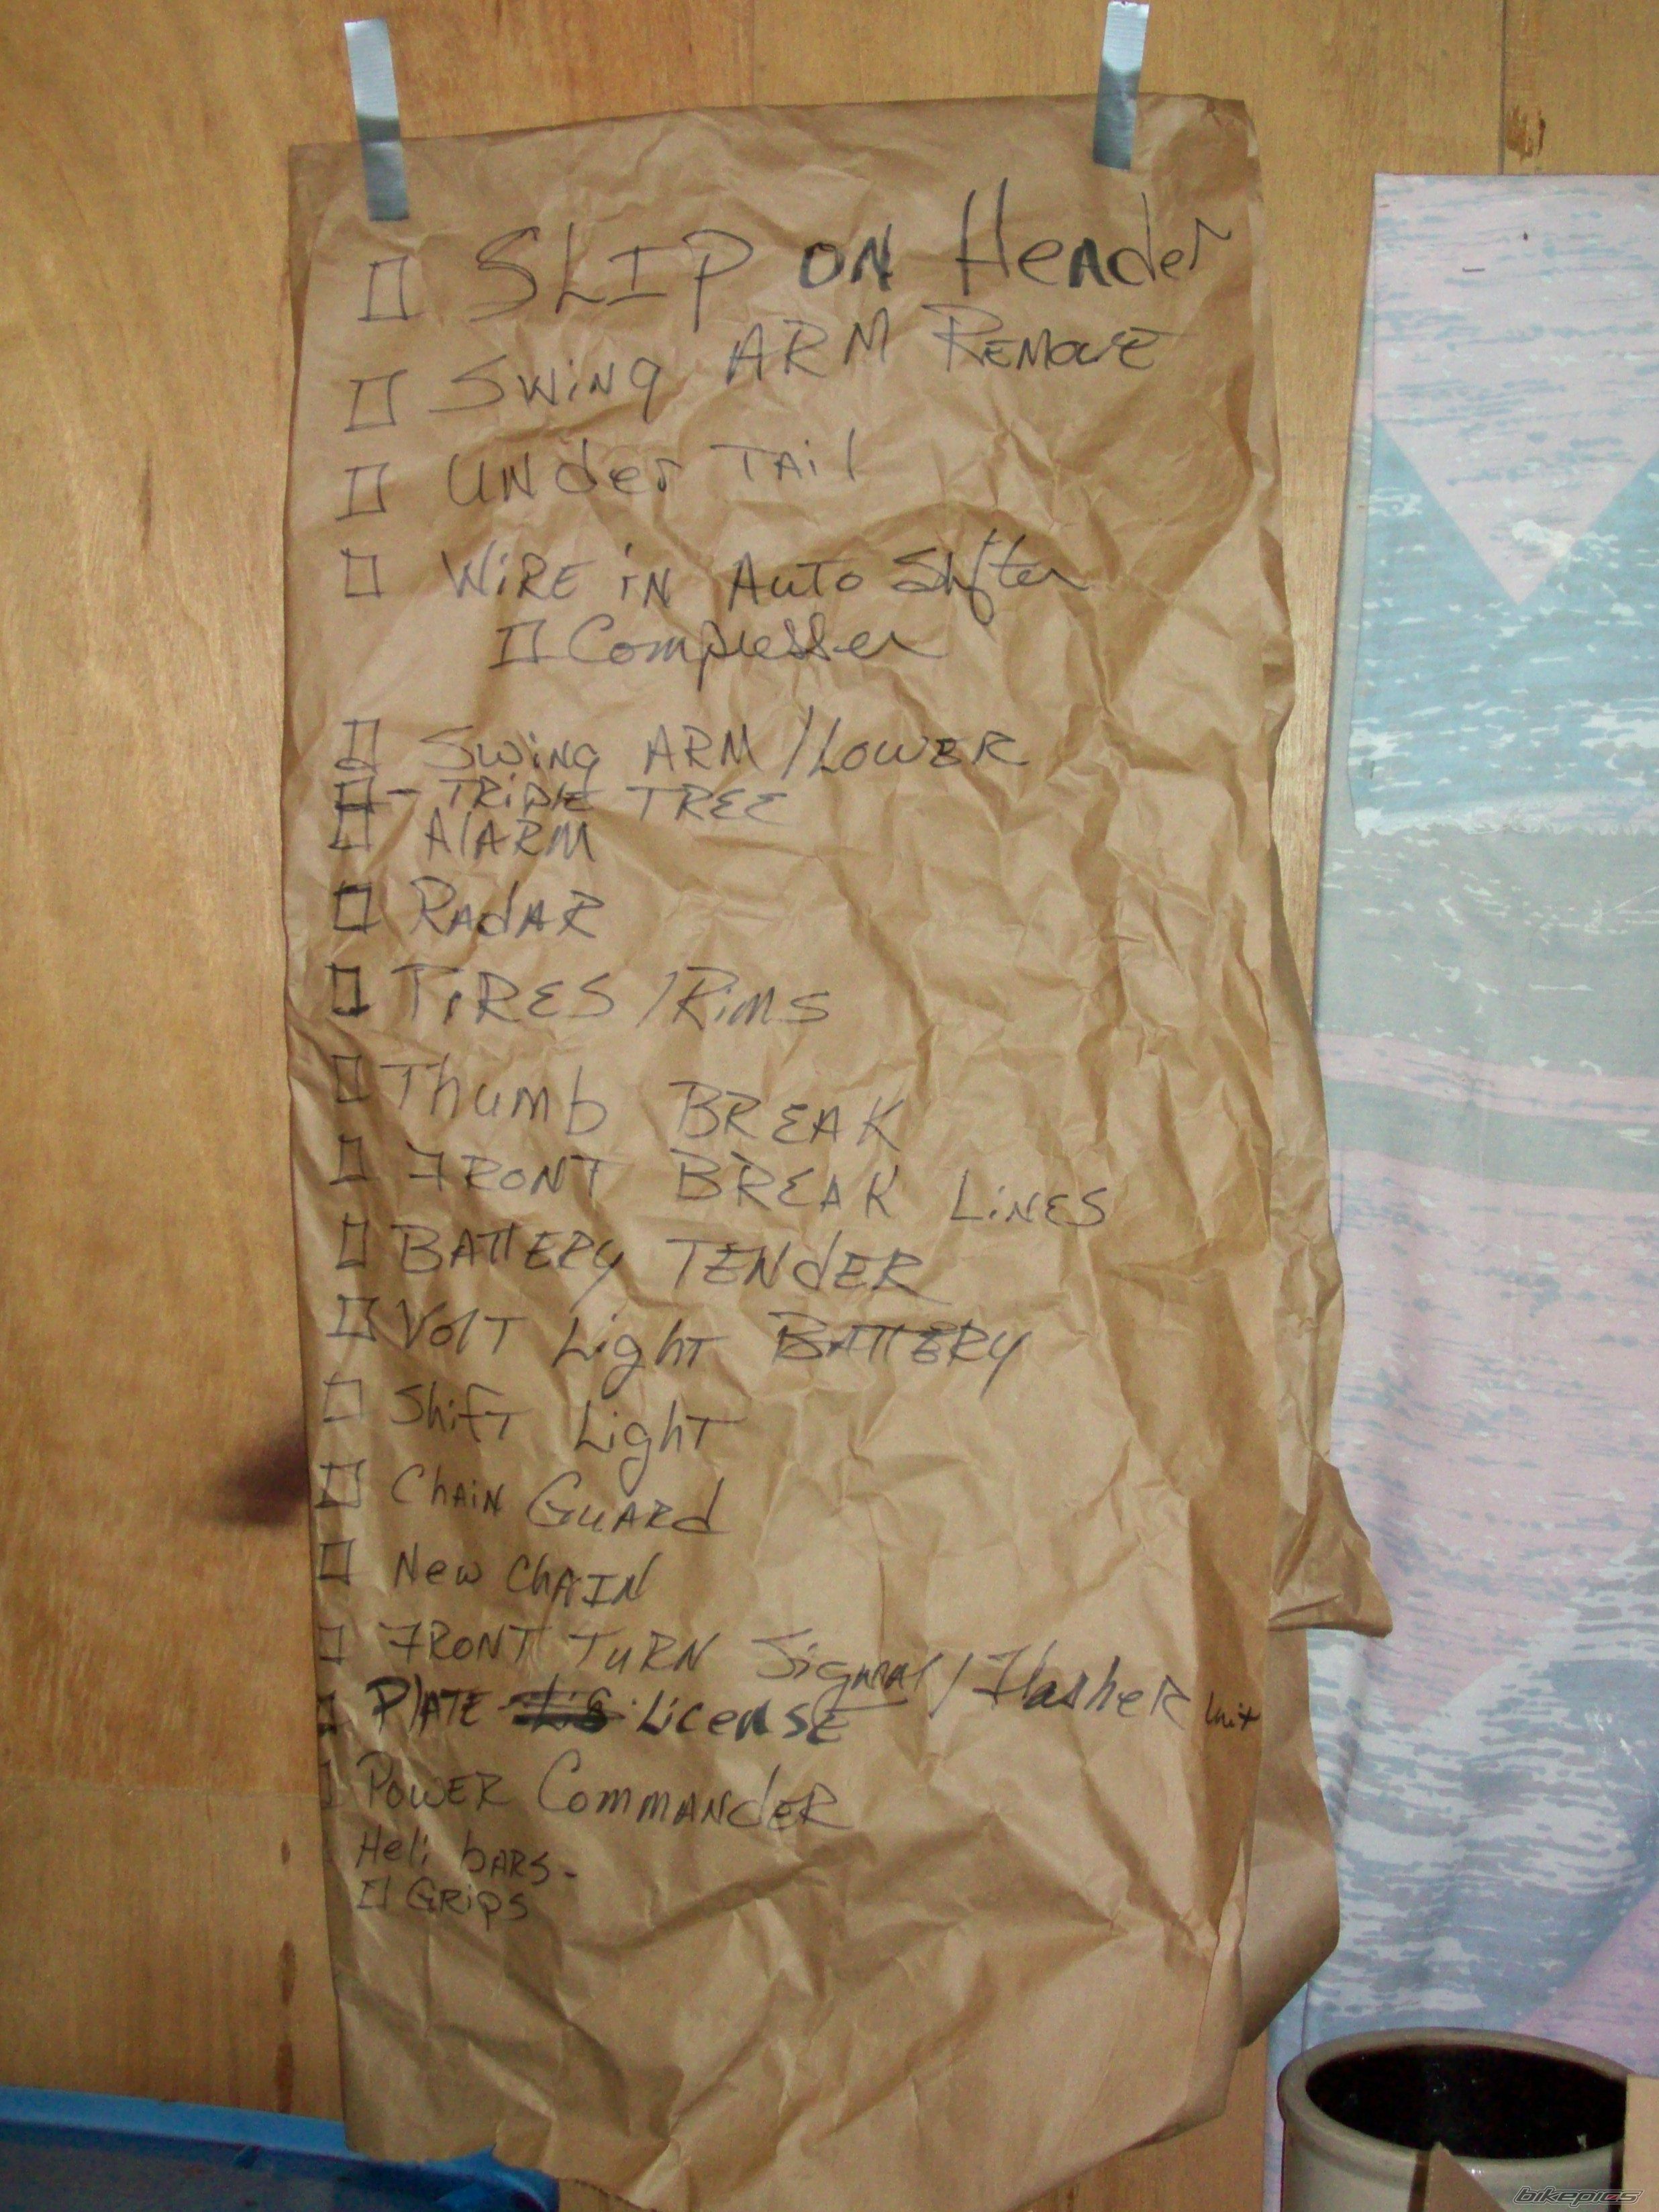 SLIP ON Header
Swing ARM REMOVE
UNder TAil
WiRE iN AUTO Shifter
Compresser
Swing ARM / LOWER
- TRiplE TREE
AlARM
RAdAR
TiRES / Rims
Thumb BREAK
FRONT BREAK LiNES
BATTERY TENdER
VolT Light BATTERY
ShifT Light
ChAiN GuARd
New ChAIN
FRONT TURN Signal / FlasheR Unit
PlATE Lis LicenSE
POWER COmmANdeR
Heli bARS -
GRips
bikepics